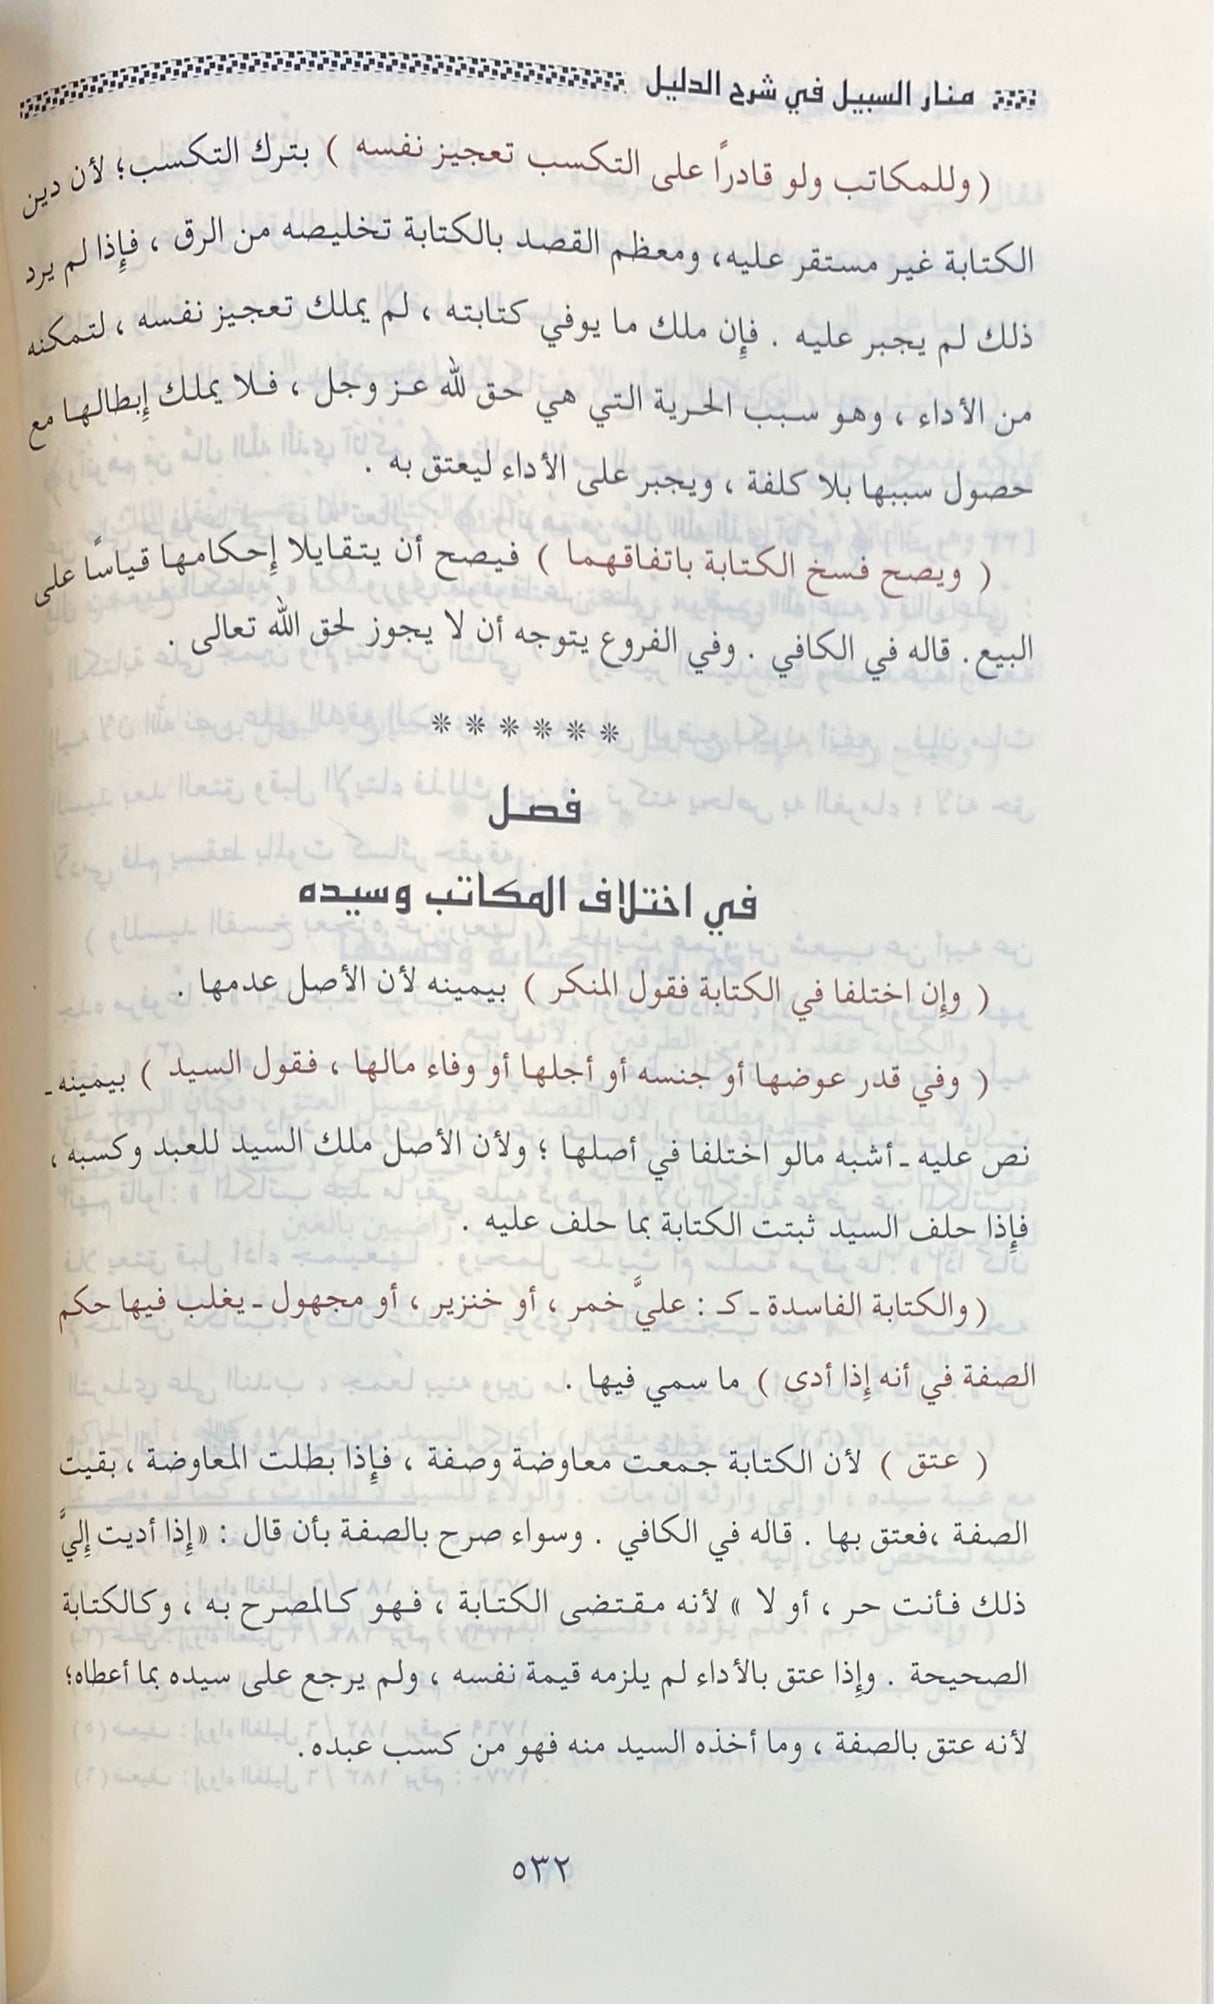 منار السبيل في شرح الدليل
( وللمكاتب ولو قادراً على التكسب تعجيز نفسه ) بترك التكسب؛ لأن دين
الكتابة غير مستقر عليه، ومعظم القصد بالكتابة تخليصه من الرق ، فإِذا لم يرد
ذلك لم يجبر عليه . فإِن ملك ما يوفي كتابته ، لم يملك تعجيز نفسه ، لتمكنه
من الأداء ، وهو سبب الحرية التي هي حق لله عز وجل ، فلا يملك إِبطالها مع
حصول سببها بلا كلفة ، ويجبر على الأداء ليعتق به .
( ويصح فسخ الكتابة باتفاقهما ) فيصح أن يتقايلا إِحكامها قياساً على
البيع. قاله في الكافي . وفي الفروع يتوجه أن لا يجوز لحق الله تعالى .
* * * * * *
فصل
في اختلاف المكاتب وسيده
( وإِن اختلفا في الكتابة فقول المنكر ) بيمينه لأن الأصل عدمها .
( وفي قدر عوضها أو جنسه أو أجلها أو وفاء مالها ، فقول السيد ) بيمينه ـ
نص عليه ـ أشبه مالو اختلفا في أصلها ؛ ولأن الأصل ملك السيد للعبد وكسبه ،
فإِذا حلف السيد ثبتت الكتابة بما حلف عليه .
( والكتابة الفاسدة ـ كـ : عليَّ خمر ، أو خنزير ، أو مجهول ـ يغلب فيها حكم
الصفة في أنه إِذا أدى ) ما سمي فيها .
( عتق ) لأن الكتابة جمعت معاوضة وصفة ، فإِذا بطلت المعاوضة ، بقيت
الصفة ،فعتق بها . قاله في الكافي . وسواء صرح بالصفة بأن قال : « إِذا أديت إِليَّ
ذلك فأنت حر ، أو لا » لأنه مقتضى الكتابة ، فهو كالمصرح به ، وكالكتابة
الصحيحة . وإِذا عتق بالأداء لم يلزمه قيمة نفسه ، ولم يرجع على سيده بما أعطاه؛
لأنه عتق بالصفة ، وما أخذه السيد منه فهو من كسب عبده.
٥٣٢